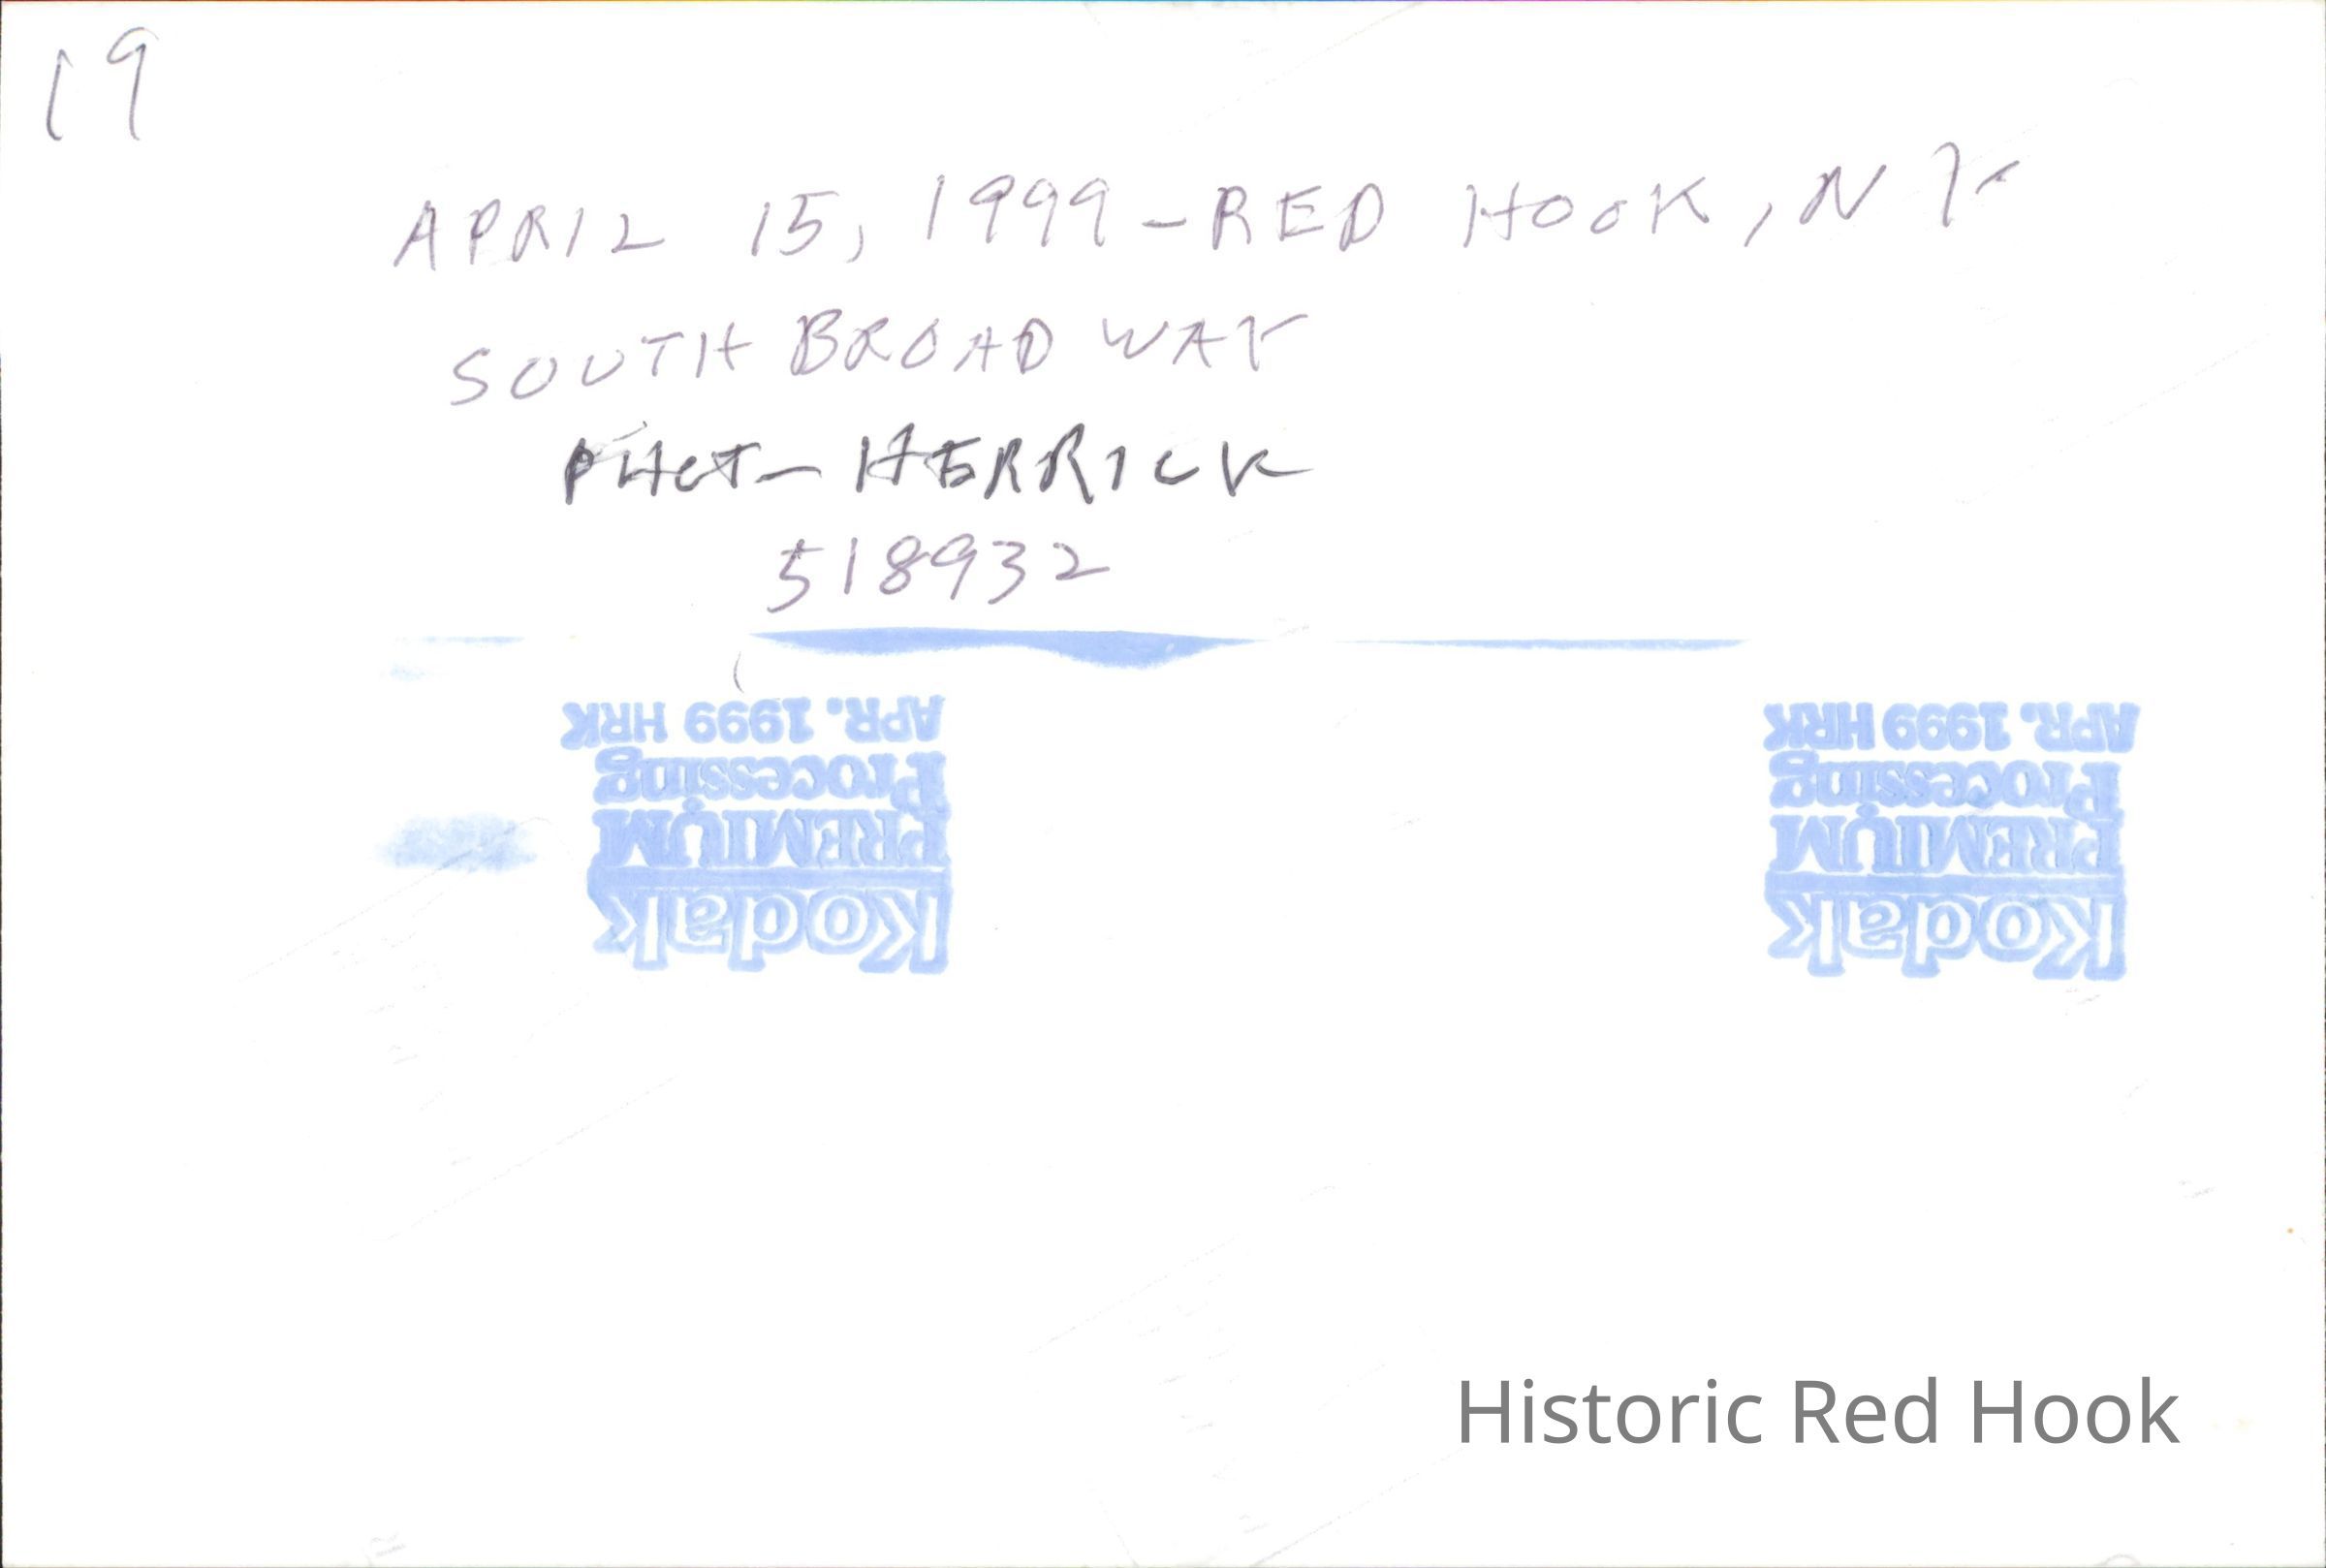 19
APRIL 15, 1999 - RED HOOK, NY
SOUTH BROADWAY
PHOT - HERRICK
518932
APR. 1999 HRK
Processing
PREMIUM
Kodak
APR. 1999 HRK
Processing
PREMIUM
Kodak
Historic Red Hook